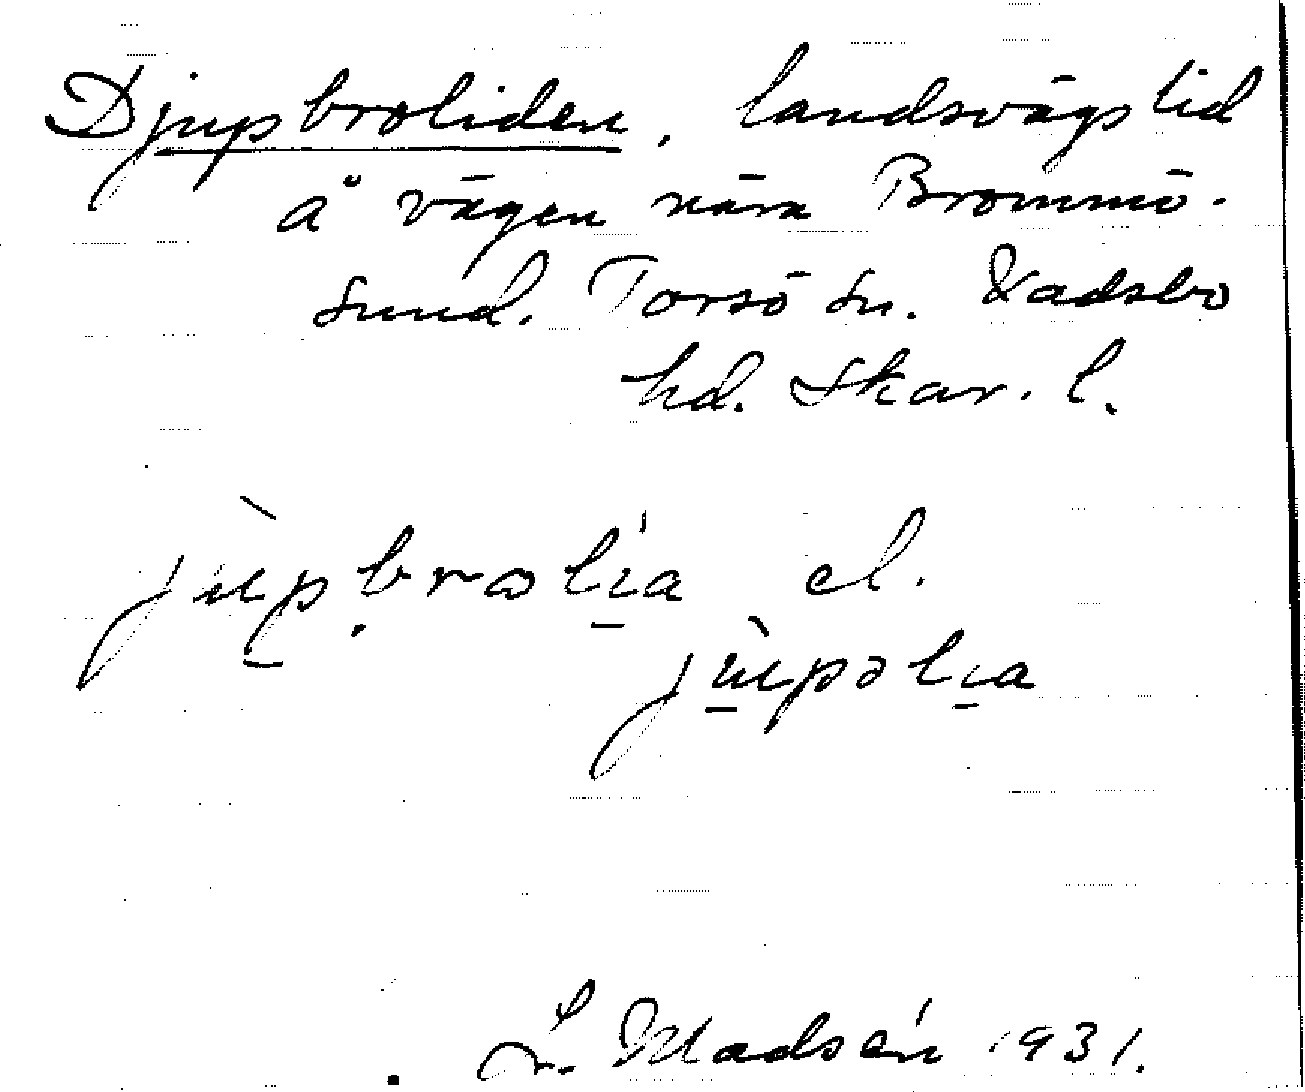 Djupbroliden, landsvägslid
å vägen nära Brommö-
sund. Torsö sn. Vadsbo
hd. Skar. l.
jùpbrωlía el.
jùpəlıa
L. Madsén 1931.